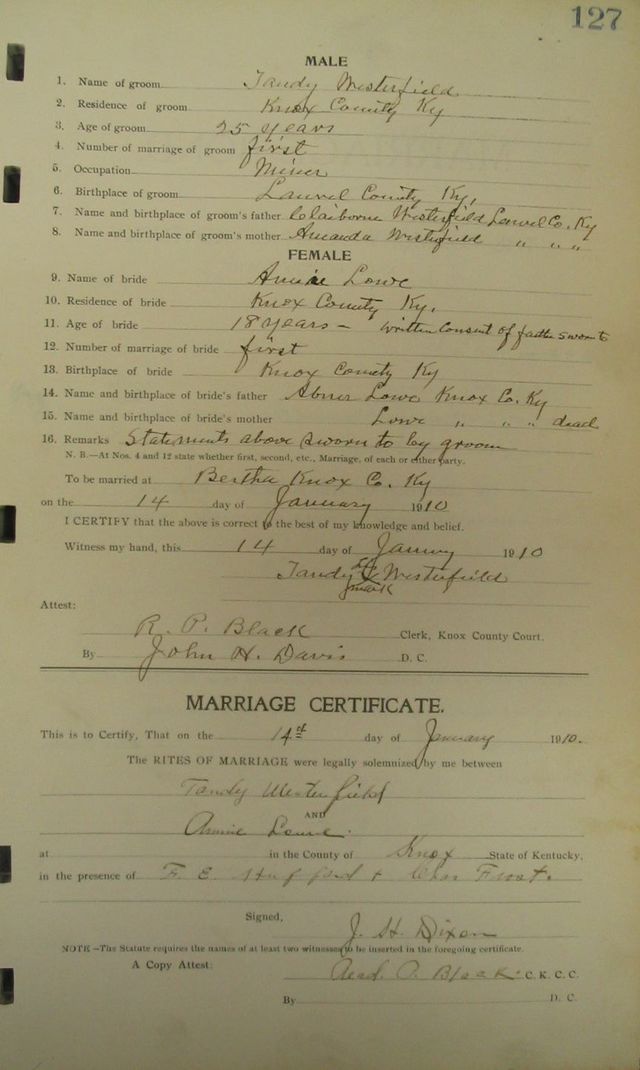 127
MALE
1. Name of groom Tandy Westerfield
2. Residence of groom Knox County Ky
3. Age of groom 25 years
4. Number of marriage of groom first
5. Occupation Miner
6. Birthplace of groom Laurel County Ky,
7. Name and birthplace of groom's father Claiborne Westerfield Laurel Co. Ky
8. Name and birthplace of groom's mother Amanda Westerfield " " "
FEMALE
9. Name of bride Annie Lowe
10. Residence of bride Knox County Ky.
11. Age of bride 18 years - written consent of father sworn to
12. Number of marriage of bride first
13. Birthplace of bride Knox County Ky
14. Name and birthplace of bride's father Abner Lowe Knox Co. Ky
15. Name and birthplace of bride's mother Lowe " " " dead
16. Remarks Statements above sworn to by groom
N. B.—At Nos. 4 and 12 state whether first, second, etc., Marriage, of each or either party.
To be married at Bertha Knox Co. Ky
on the 14 day of January 1910
I CERTIFY that the above is correct to the best of my knowledge and belief.
Witness my hand, this 14 day of January 1910
Tandy X Westerfield
mark
Attest:
R. P. Black Clerk, Knox County Court.
By John H. Davis D. C.
MARRIAGE CERTIFICATE.
This is to Certify, That on the 14 day of January 1910.
The RITES OF MARRIAGE were legally solemnized by me between
Tandy Westerfield
AND
Annie Lowe
at in the County of Knox State of Kentucky,
in the presence of F. E. + Frost.
Signed, J. H. Dixon
NOTE—The Statute requires the names of at least two witnesses to be inserted in the foregoing certificate.
A Copy Attest: Black C. K. C. C.
By D. C.